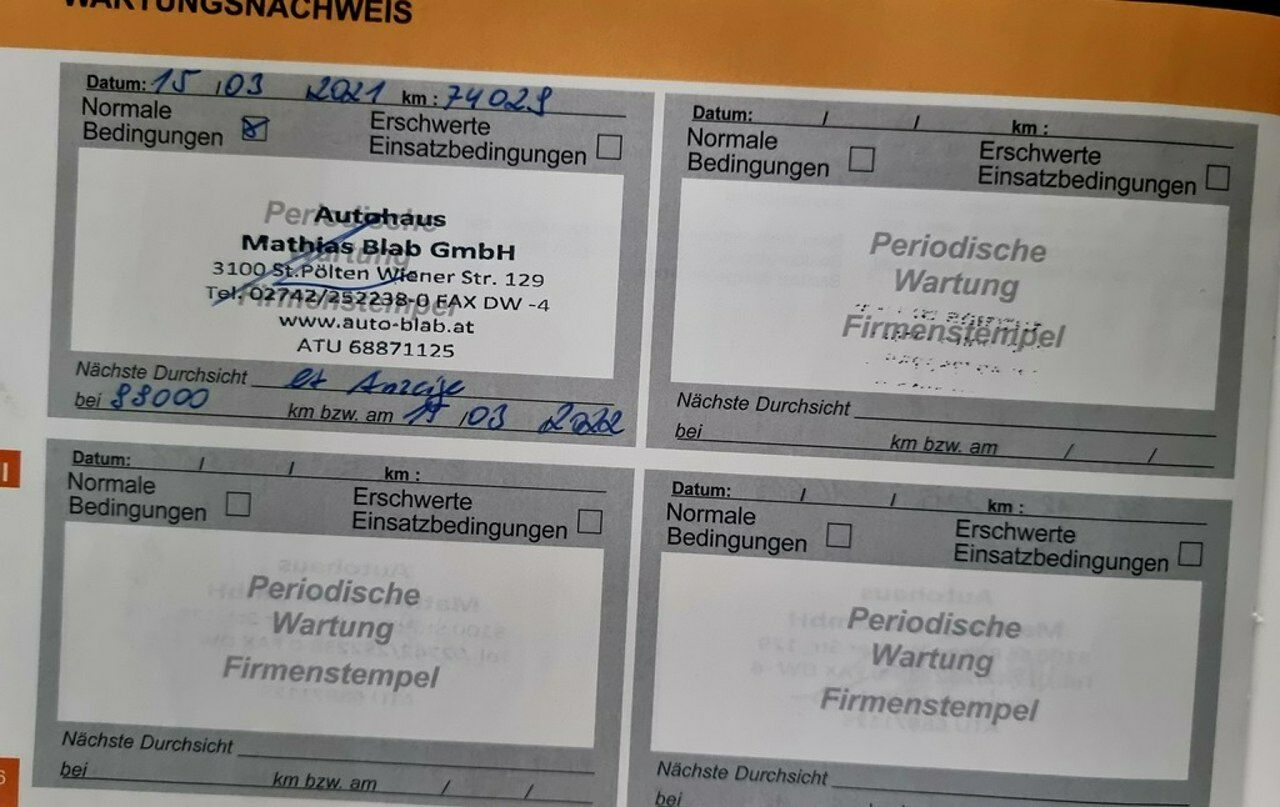 WARTUNGSNACHWEIS
Datum: 15 / 03 2021 km : 74029
Normale
Bedingungen
Erschwerte
Einsatzbedingungen
Periodische
Wartung
Firmenstempel
Autohaus
Mathias Blab GmbH
3100 St.Pölten Wiener Str. 129
Tel. 02742/252238-0 FAX DW -4
www.auto-blab.at
ATU 68871125
Nächste Durchsicht lt Anzeige
bei km bzw. am / 03 2022
Datum: / / km :
Normale
Bedingungen
Erschwerte
Einsatzbedingungen
Periodische
Wartung
Firmenstempel
Nächste Durchsicht
bei km bzw. am / /
Datum: / / km :
Normale
Bedingungen
Erschwerte
Einsatzbedingungen
Periodische
Wartung
Firmenstempel
Nächste Durchsicht
bei km bzw. am / /
Datum: / / km :
Normale
Bedingungen
Erschwerte
Einsatzbedingungen
Periodische
Wartung
Firmenstempel
Nächste Durchsicht
bei